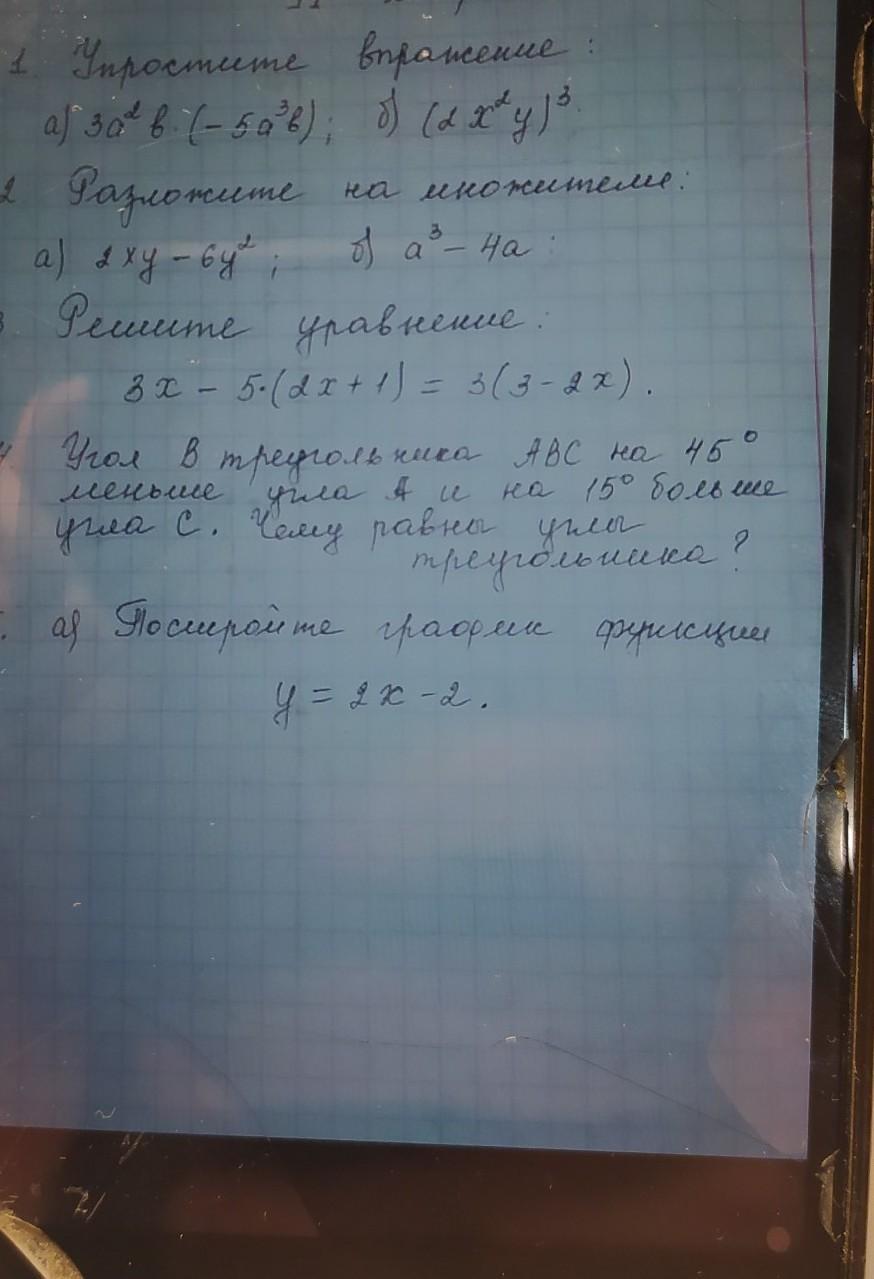 1. Упростите выражение:
а) 3a²b·(-5a³b); б) (2x²y)³.
2 Разложите на множители:
а) 2xy - 6y²; б) a³ - 4a:
3 Решите уравнение:
3x - 5·(2x+1) = 3(3-2x).
4. Угол В треугольника АВС на 45°
меньше угла А и на 15° больше
угла С. Чему равны углы
треугольника?
а) Постройте график функции
y = 2x - 2.